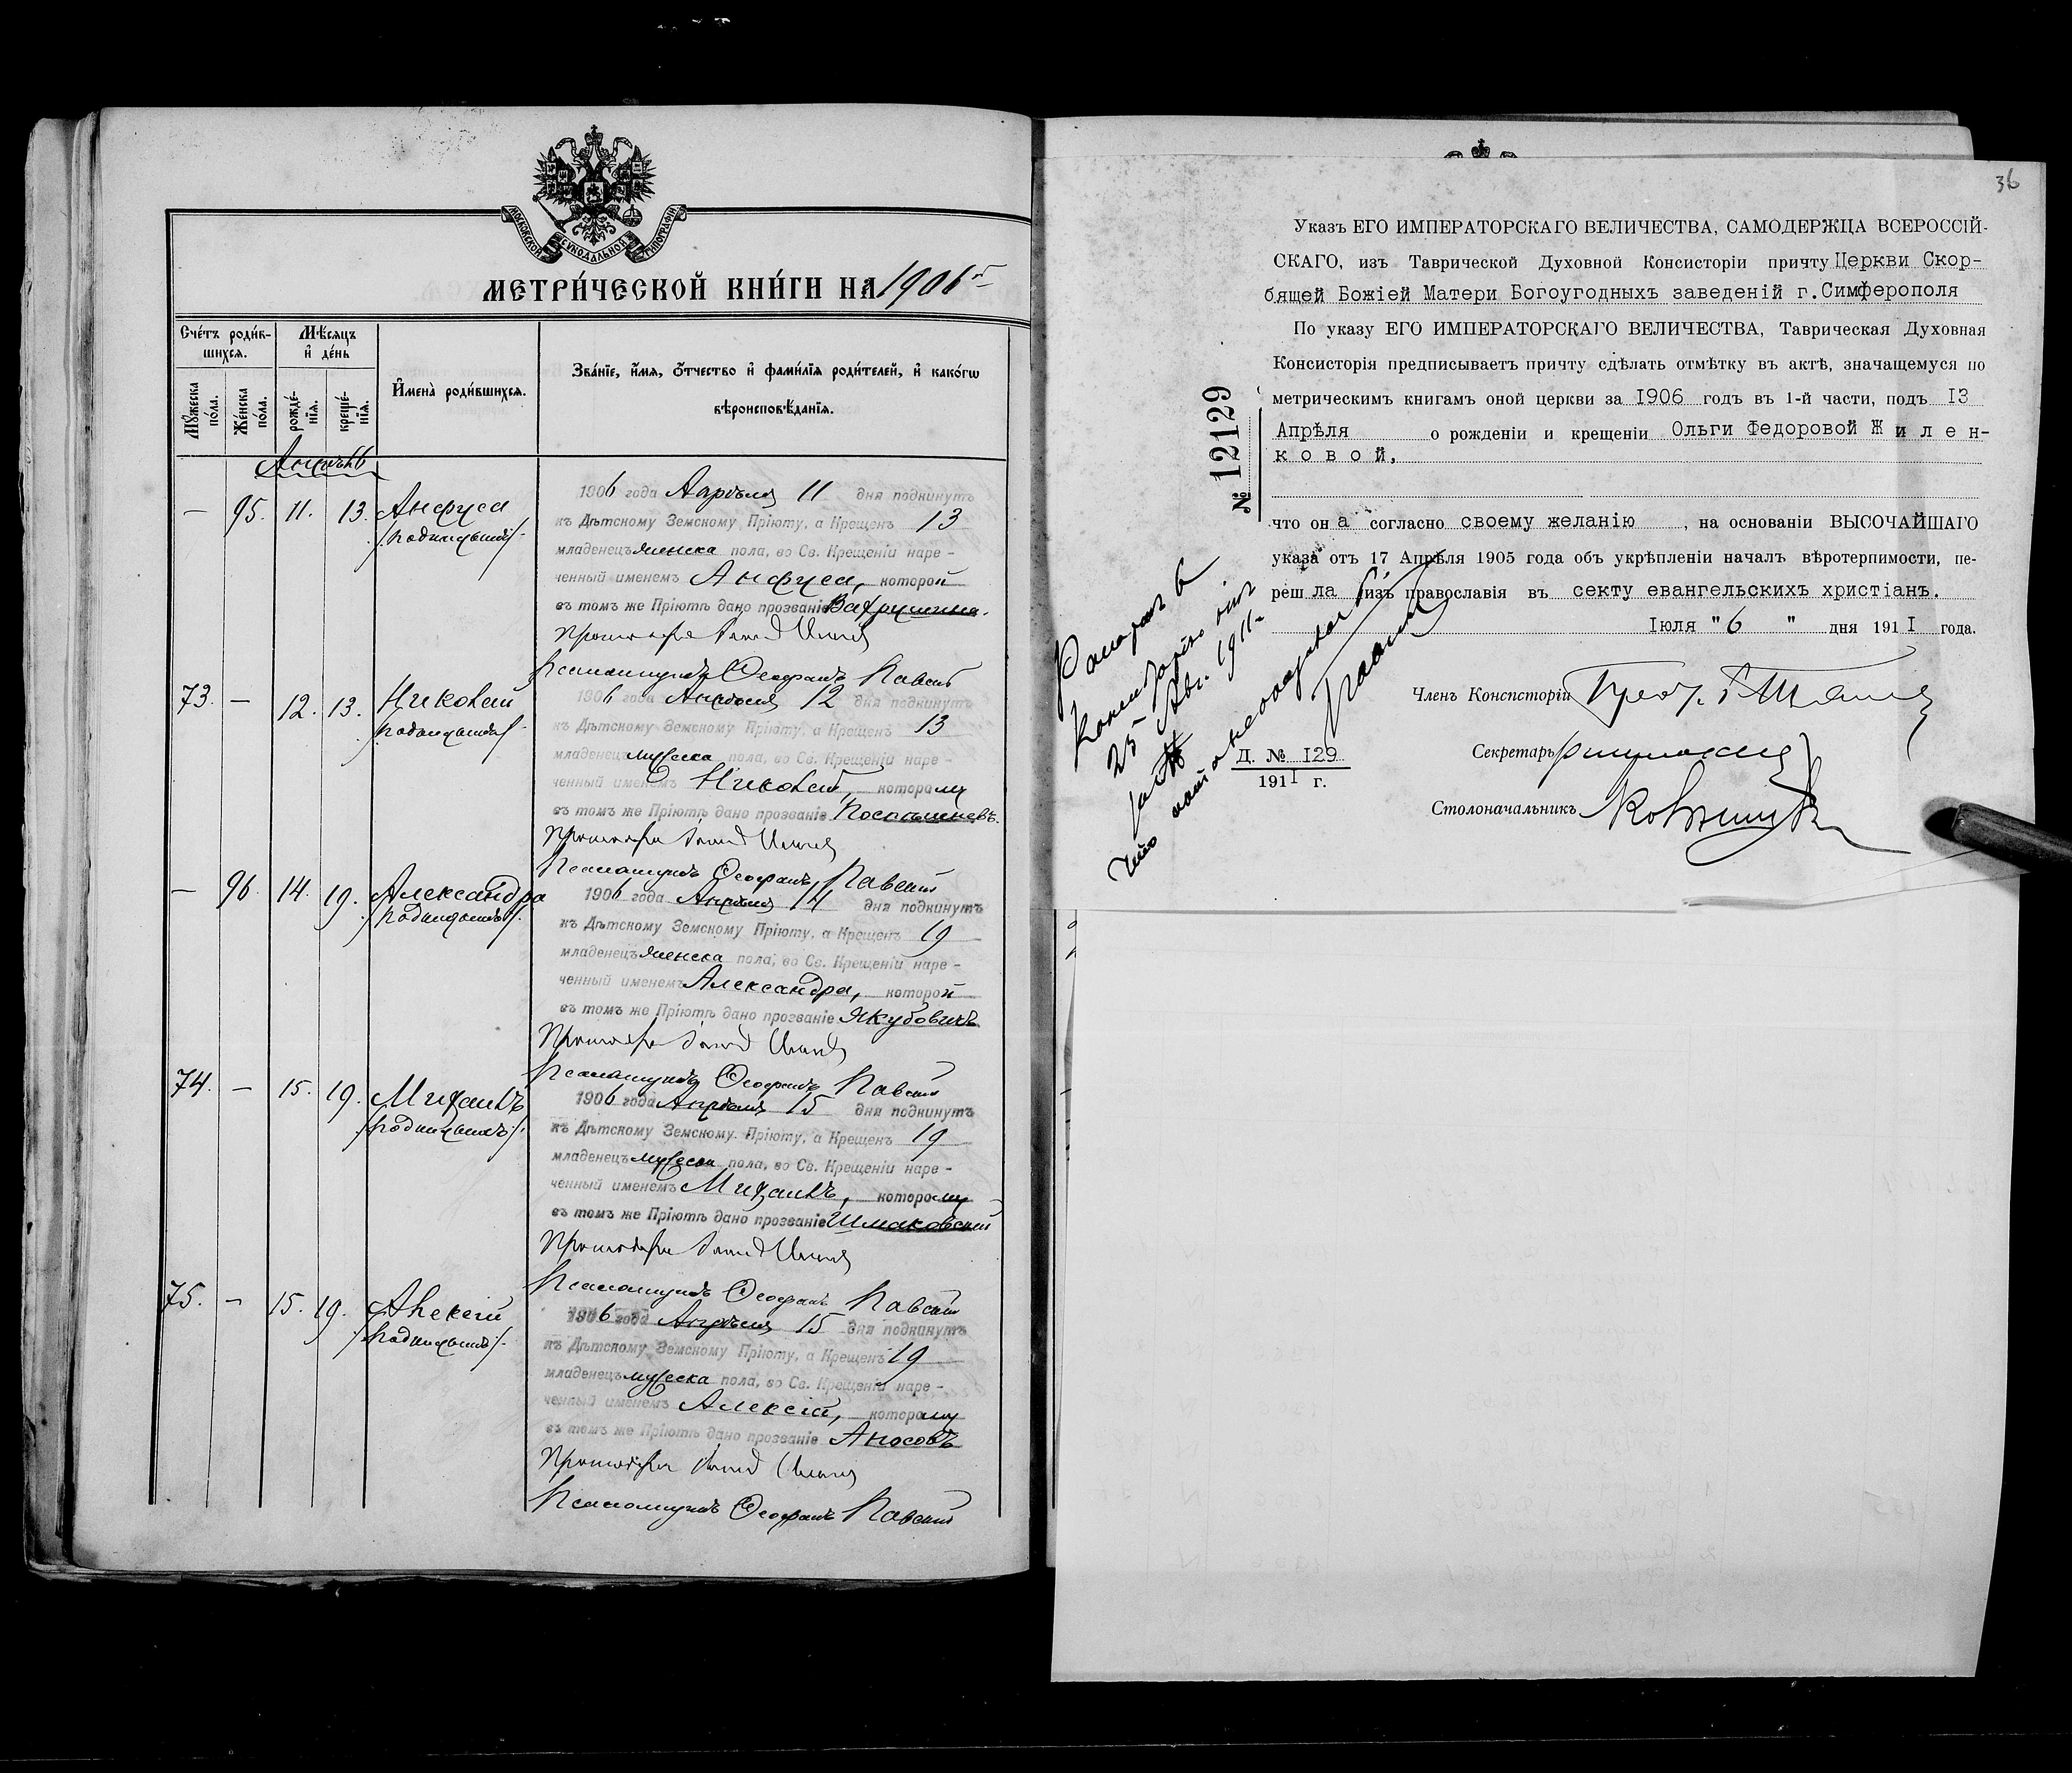 МОСКОВСКОЙ СѴНОДАЛЬНОЙ ТИПОГРАФІИ
МЕТРИ́ЧЕСКОЙ КНИ́ГИ НА 1906 г
Сче́тъ роди́в-
шихся.
Мѣ́сяцъ
и҆ де́нь
Мꙋ́жеска
по́ла.
Же́нска
по́ла.
рожде́-
нїѧ.
креще́-
нїѧ.
И҆мена̀ роди́вшихся.
Зва́нїе, и҆́мѧ, ѻ҆́тчество и҆ фами́лїѧ роди́телей, и҆ како́гѡ
вѣроисповѣ́данїѧ.
Апрѣль
— 95. 11. 13. Анфуса
/подкидышъ/
1906 года Апрѣля 11 дня подкинутъ
къ Дѣтскому Земскому Пріюту, а Крещенъ 13
младенецъ женска пола, во Св. Крещеніи наре-
ченный именемъ Анфуса, которой
въ томъ же Пріютѣ дано прозваніе Вахрушина.
Псаломщикъ Ѳеофанъ Павскій
73. — 12. 13. Николай
/подкидышъ/
1906 года Апрѣля 12 дня подкинутъ
къ Дѣтскому Земскому Пріюту, а Крещенъ 13
младенецъ мужеска пола, во Св. Крещеніи наре-
ченный именемъ Николай, которому
въ томъ же Пріютѣ дано прозваніе Поспѣшневъ.
Псаломщикъ Ѳеофанъ Павскій
— 96. 14. 19. Александра
/подкидышъ/.
1906 года Апрѣля 14 дня подкинутъ
къ Дѣтскому Земскому Пріюту, а Крещенъ 19
младенецъ женска пола, во Св. Крещеніи наре-
ченный именемъ Александра, которой
въ томъ же Пріютѣ дано прозваніе Якубовичъ
Псаломщикъ Ѳеофанъ Павскій
74. — 15. 19. Михаилъ
/подкидышъ/.
1906 года Апрѣля 15 дня подкинутъ
къ Дѣтскому Земскому Пріюту, а Крещенъ 19
младенецъ мужеска пола, во Св. Крещеніи наре-
ченный именемъ Михаилъ, которому
въ томъ же Пріютѣ дано прозваніе Шмаковскій
Псаломщикъ Ѳеофанъ Павскій
75. — 15. 19. Алексій
/подкидышъ/.
1906 года Апрѣля 15 дня подкинутъ
къ Дѣтскому Земскому Пріюту, а Крещенъ 19
младенецъ мужеска пола, во Св. Крещеніи наре-
ченный именемъ Алексій, которому
въ томъ же Пріютѣ дано прозваніе Аносовъ
Псаломщикъ Ѳеофанъ Павскій
36
Указъ ЕГО ИМПЕРАТОРСКАГО ВЕЛИЧЕСТВА, САМОДЕРЖЦА ВСЕРОССІЙ-
СКАГО, изъ Таврической Духовной Консисторіи причту Церкви Скор-
бящей Божіей Матери Богоугодныхъ заведеній г.Симферополя
По указу ЕГО ИМПЕРАТОРСКАГО ВЕЛИЧЕСТВА, Таврическая Духовная
Консисторія предписываетъ причту сдѣлать отмѣтку въ актѣ, значащемуся по
метрическимъ книгамъ оной церкви за 1906 годъ въ 1-й части, подъ 13
Апрѣля о рожденіи и крещеніи Ольги Федоровой Ж и л е н-
к о в о й,
что он а согласно своему желанію , на основаніи ВЫСОЧАЙШАГО
указа отъ 17 Апрѣля 1905 года объ укрѣпленіи началъ вѣротерпимости, пе-
реш ла изъ православія въ секту евангельскихъ христіанъ.
Іюля " 6 " дня 191 I года.
№ 12129
Членъ Консисторіи
Секретарь
Столоначальникъ
Д. № 129
191 I г.
Рапортъ въ
Консисторію отъ
25 Авг. 1911